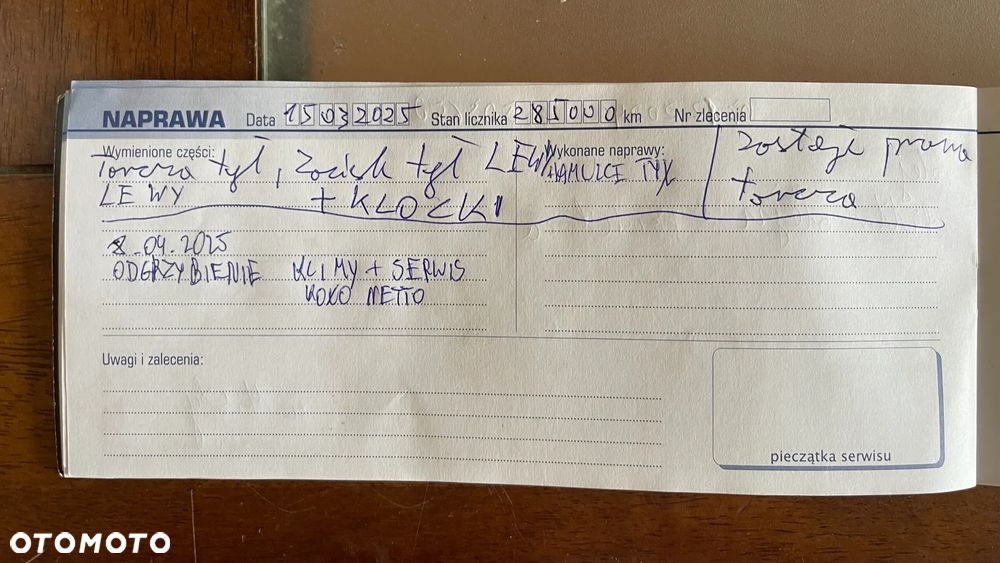 NAPRAWA Data 15032025 Stan licznika 285000 km Nr zlecenia
Wymienione części: Wykonane naprawy:
Tarcza tył, Zacisk tył LEWY HAMULCE TYŁ Zostaje prawa
LEWY + KLOCKI tarcza
8.04.2025
ODGRZYBIENIE KLIMY + SERWIS
KOKO NETTO
Uwagi i zalecenia:
pieczątka serwisu
OTOMOTO